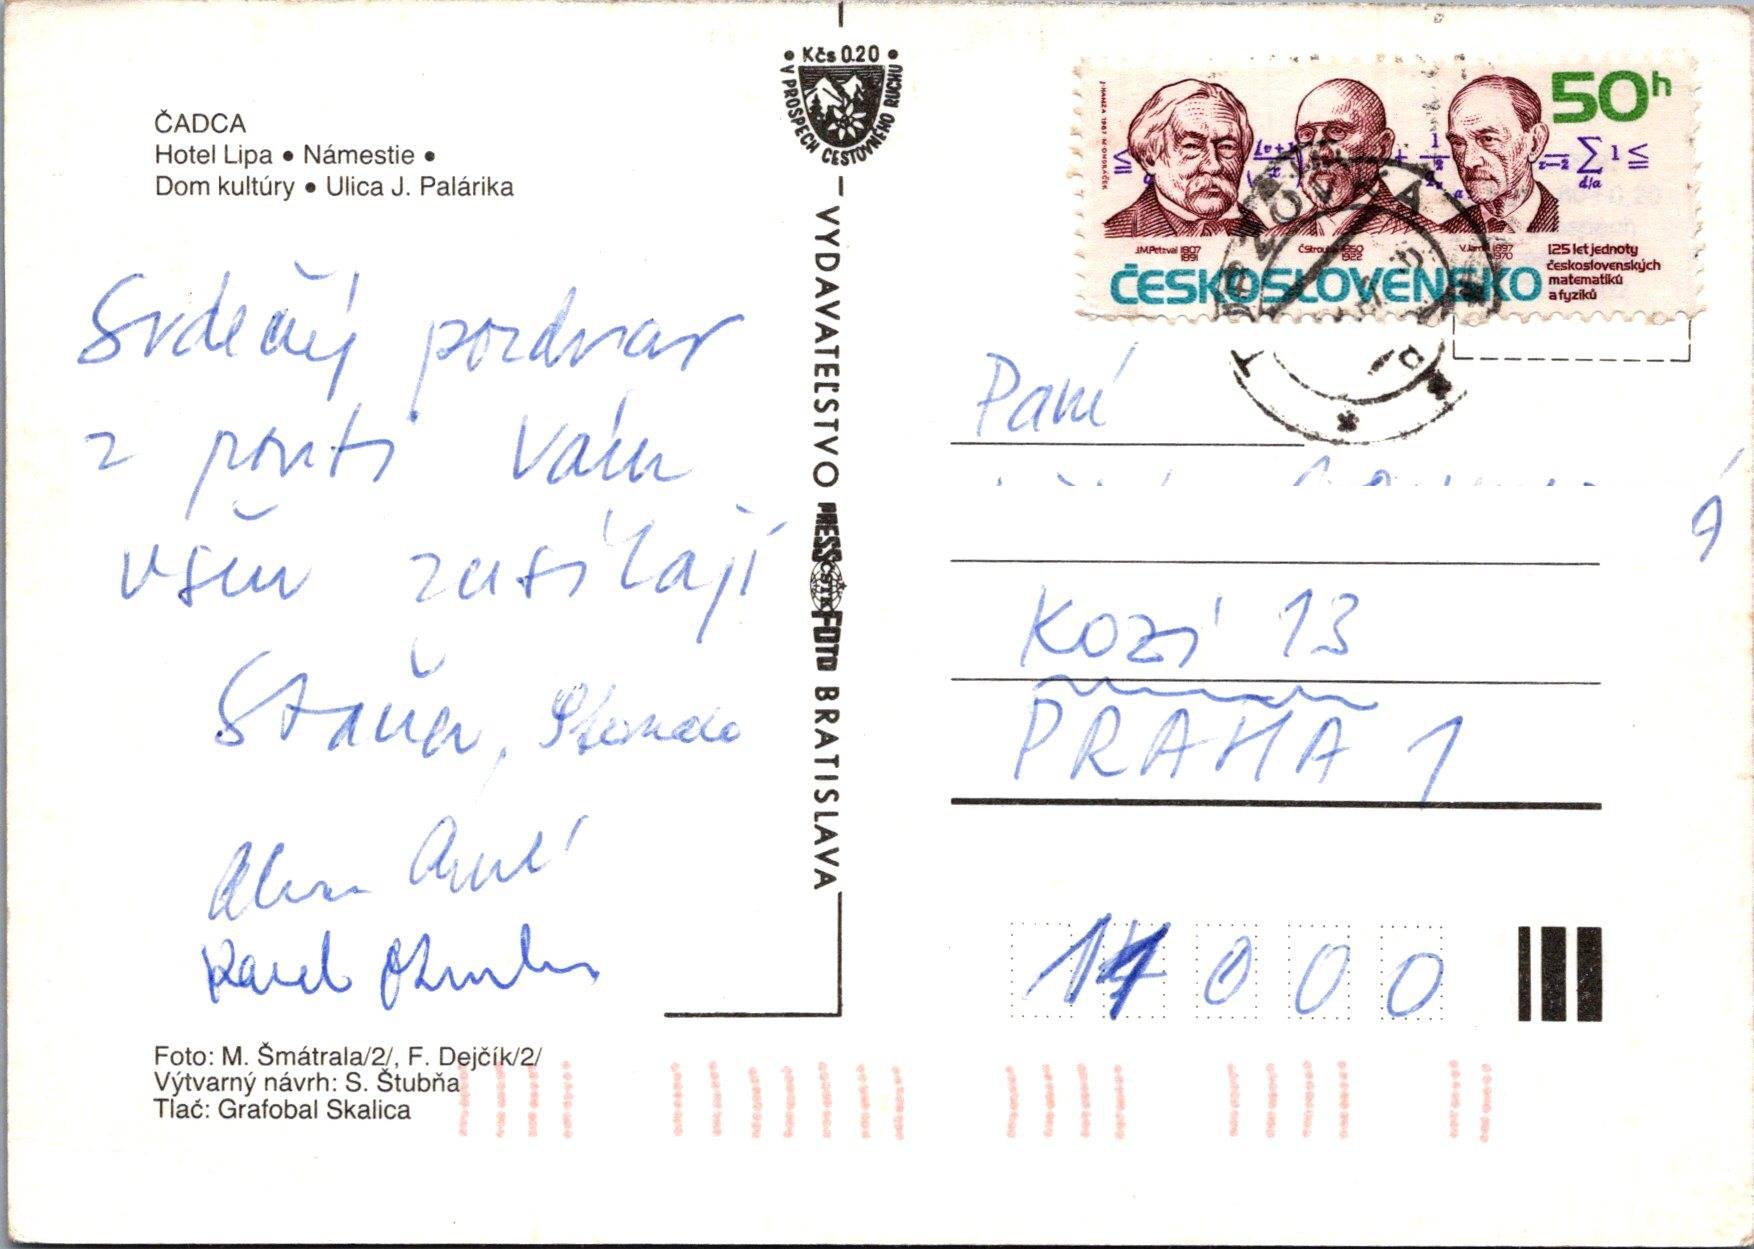 ČADCA
Hotel Lipa • Námestie •
Dom kultúry • Ulica J. Palárika
Kčs 0.20
V PROSPECH CESTOVNÉHO RUCHU
VYDAVATEĽSTVO PRESSFOTO BRATISLAVA
ČSTK
J. HANZA 1987 M. ONDRÁČEK
50h
J.M.Petzval 1807
1891
Č.Strouhal 1850
1922
V.Jarník 1897
1970
125 let jednoty
československých
matematiků
a fyziků
ČESKOSLOVENSKO
Srdečný pozdrav
z pouti Vám
všem zasílají
Karel
Paní
Kozí 13
PRAHA 1
11 000
Foto: M. Šmátrala/2/, F. Dejčík/2/
Výtvarný návrh: S. Štubňa
Tlač: Grafobal Skalica